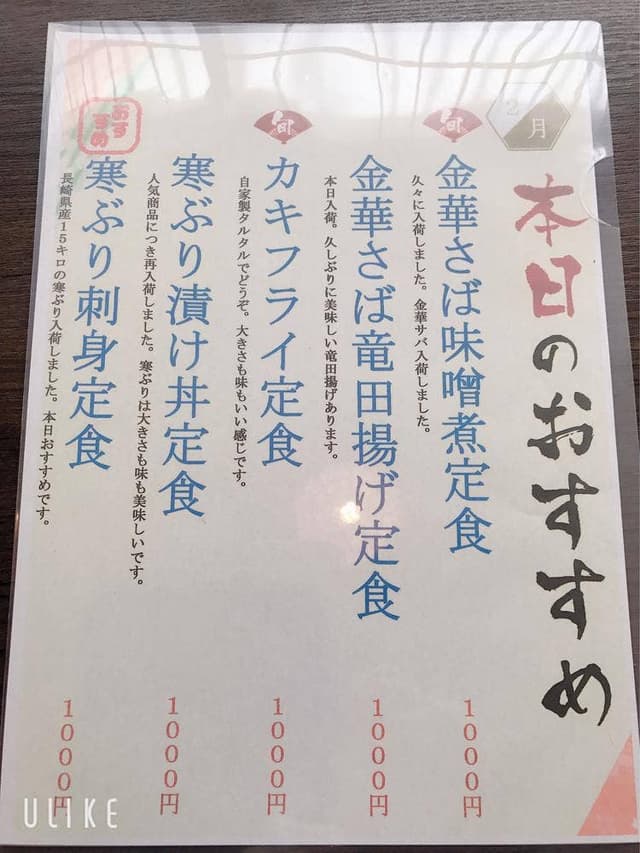 2月
本日のおすすめ
旬
金華さば味噌煮定食
久々に入荷しました。金華サバ入荷しました。
1000円
金華さば竜田揚げ定食
本日入荷。久しぶりに美味しい竜田揚げあります。
1000円
旬
カキフライ定食
自家製タルタルでどうぞ。大きさも味もいい感じです。
1000円
寒ぶり漬け丼定食
人気商品につき再入荷しました。寒ぶりは大きさも味も美味しいです。
1000円
おすすめ
寒ぶり刺身定食
長崎県産15キロの寒ぶり入荷しました。本日おすすめです。
1000円
ULIKE